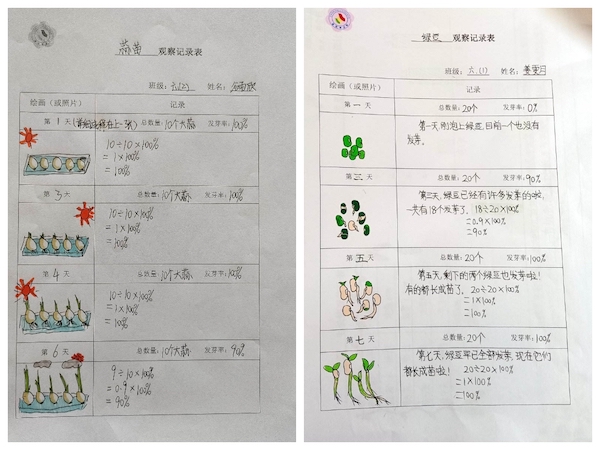 蒜黄 观察记录表
班级: 六.(1) 姓名:
绘画（或照片） 记录
第 1 天 总数量: 10个大蒜 发芽率: 100%
10÷10×100%
=1×100%
=100%
第 3 天 总数量: 10个大蒜 发芽率: 100%
10÷10×100%
=1×100%
=100%
第 4 天 总数量: 10个大蒜 发芽率: 100%
10÷10×100%
=1×100%
=100%
第 6 天 总数量: 10个大蒜 发芽率: 90%
9÷10×100%
=0.9×100%
=90%
绿豆 观察记录表
班级: 六.(1) 姓名: 姜雯月
绘画（或照片） 记录
第 一 天 总数量: 20个 发芽率: 0%
第一天,刚泡上绿豆,目前一个也没有
发芽。
第 三 天 总数量: 20个 发芽率: 90%
第三天,绿豆已经有许多发芽的啦,
一共有18个发芽了。18÷20×100%
=0.9×100%
=90%
第 五 天 总数量: 20个 发芽率: 100%
第五天,剩下的两个绿豆也发芽啦!
有的都长成苗了。20÷20×100%
=1×100%
=100%
第 七 天 总数量: 20个 发芽率: 100%
第七天,绿豆早已全部发芽,现在它们
都长成苗啦! 20÷20×100%
=1×100%
=100%